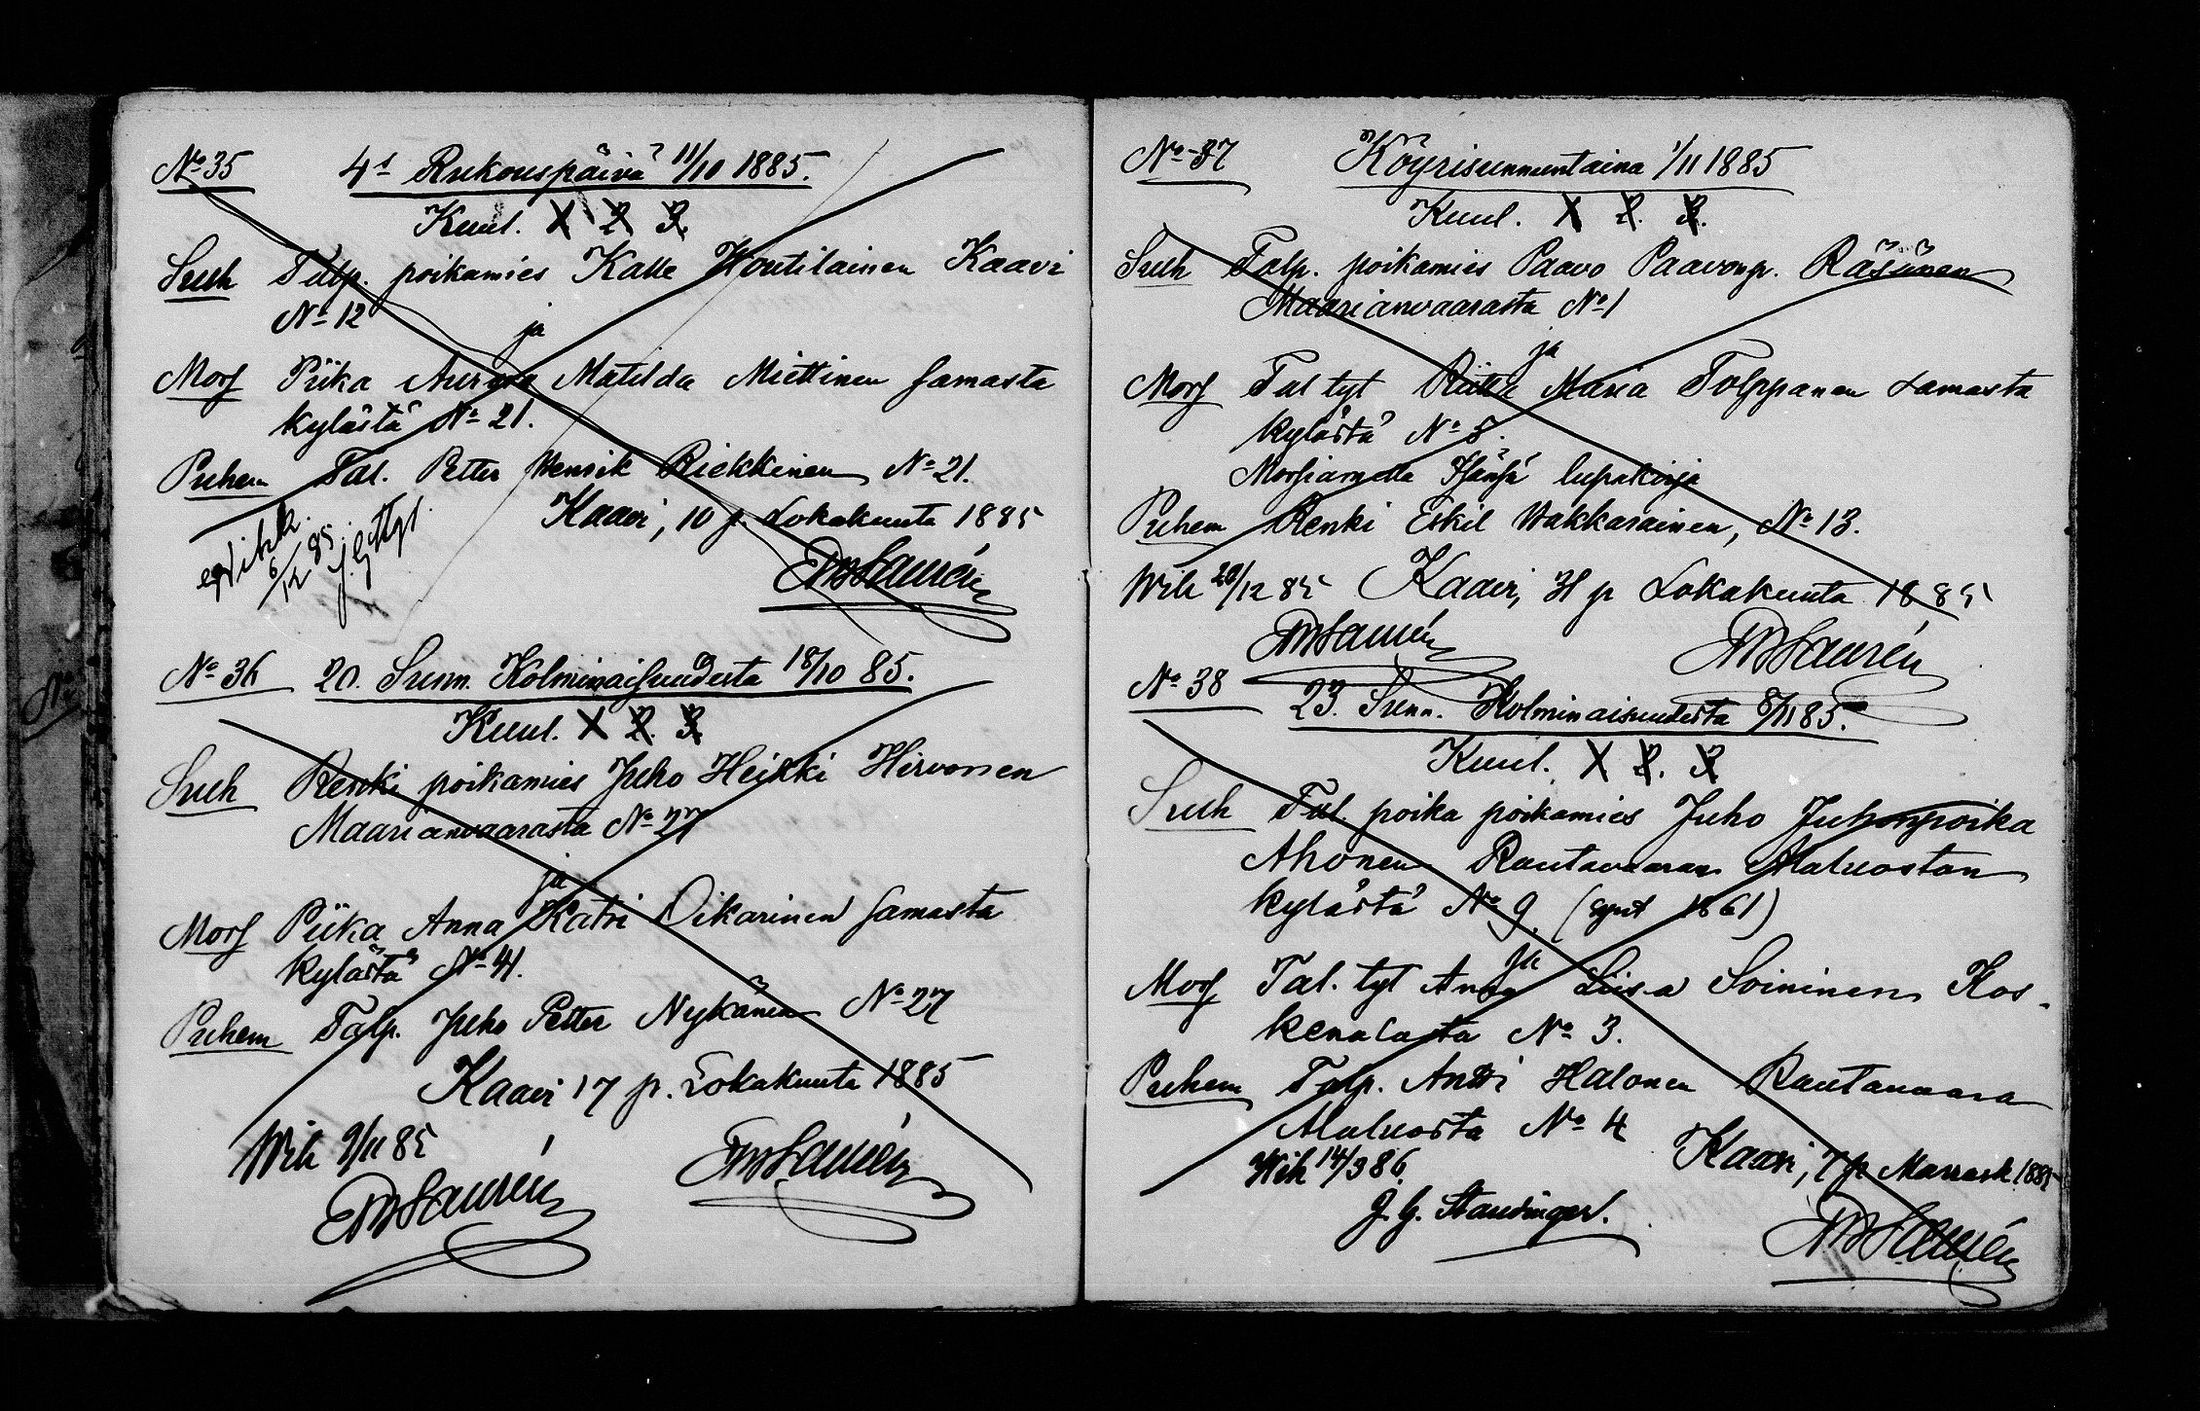 No 35 4s Rukouspäivä 11/10 1885.
Kuul. 1 2 3.
Sulh Talp. poikamies Kalle Houtilainen Kaavi
No 12
ja
Mors Piika Matilda Miettinen samasta
kylästä No 21.
Puhem Tal. Petter Henrik Riekkinen No 21.
Kaavi, 10 p. Lokakuuta 1885
Wihk.
6/12 85.
No 36 20. Sunn. Kolminaisuudesta 18/10 85.
Kuul. 1 2. 3.
Sulh Renki poikamies Juho Heikki Hirvonen
Maarianvaarasta No 27
ja
Mors Piika Anna Katri Oikarinen samasta
kylästä No 41.
Puhem Talp. Juho Petter Nykänen No 27
Kaavi 17 p. Lokakuuta 1885
Wih 9/11 85
No 37 Köyrisunnuntaina 1/11 1885
Kuul. 1 2. 3.
Sulh Talp. poikamies Paavo Paavonp. Räsänen
Maarianvaarasta No 1
ja
Mors Tal tyt Maria Tolppanen samasta
kylästä No 5.
Morsiamella lupakirja
Puhem Renki Eskil Hakkarainen, No 13.
Wih 28/12 85 Kaavi, 31 p Lokakuuta 1885
No 38 23. Sunn. Kolminaisuudesta 8/11 85.
Kuul. 1 2. 3
Sulh Tal. poika poikamies Juho Juhonpoika
Ahonen Rautavaaran Alaluostan
kylästä No 9. (synt 1861)
ja
Mors Tal. tyt Anna Liisa Soininen Kos-
kenalasta No 3.
Puhem Talp. Antti Halonen Rautavaara
Alaluosta No 4
Wih 14/3 86. Kaavi, 7 p Marrask. 1885
J. G. Staudinger.